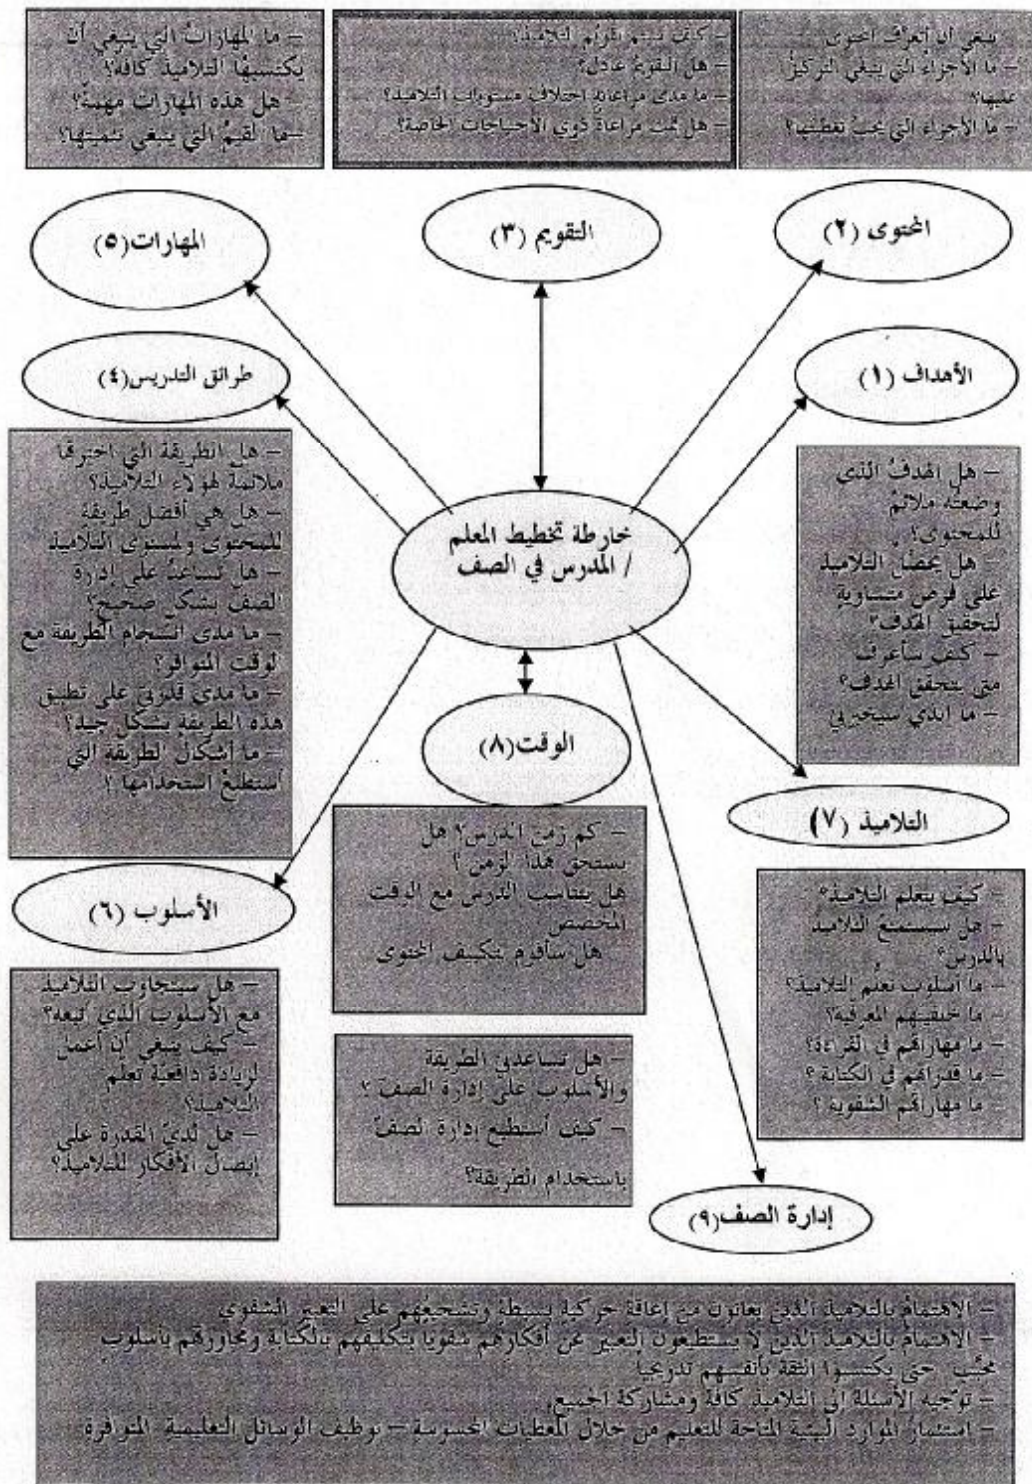 ينبغي أن أتعرف المحتوى
– ما الأجزاءُ التي ينبغي التركيزُ
عليها؟
– ما الأجزاء التي يجبُ تغطيتها؟
– كيف سيتم تقويم التلاميذ؟
– هل التقويمُ عادل؟
– ما مدى مراعاته اختلاف مستويات التلاميذ؟
– هل تمّت مراعاةُ ذوي الاحتياجات الخاصة؟
– ما المهاراتُ التي ينبغي أن
يكتسبَها التلاميذ كافة؟
– هل هذه المهارات مهمة؟
– ما القيمُ التي ينبغي تنميتها؟
المحتوى (٢)
التقويم (٣)
المهارات(٥)
الأهداف (١)
طرائق التدريس(٤)
– هل الهدفُ الذي
وضعتُه ملائمٌ
للمحتوى؟
– هل يحصلُ التلاميذ
على فرصٍ متساويةٍ
لتحقيق الهدف؟
– كيف سأعرف
متى يتحقق الهدف؟
– ما الذي سيخبرني
خارطة تخطيط المعلم
/ المدرس في الصف
– هل الطريقة التي اخترتها
ملائمةٌ لهؤلاء التلاميذ؟
– هل هي أفضل طريقةٍ
للمحتوى ولمستوى التلاميذ
– هل تساعدُ على إدارة
الصف بشكلٍ صحيح؟
– ما مدى انسجام الطريقة مع
الوقت المتوافر؟
– ما مدى قدرتي على تطبيق
هذه الطريقةِ بشكل جيد؟
– ما أشكالُ الطريقة التي
أستطيعُ استخدامها ؟
الوقت(٨)
– كم زمن الدرس؟ هل
يستحق هذا الزمن ؟
هل يتناسب الدرس مع الوقت
المخصص
هل سأقوم بتكييف المحتوى
التلاميذ (٧)
– كيف يتعلم التلاميذ؟
– هل سيستمتعُ التلاميذُ
بالدرس؟
– ما أسلوب تعلّم التلاميذ؟
– ما خلفيتهم المعرفية؟
– ما مهاراتهم في القراءة؟
– ما قدراتهم في الكتابة ؟
– ما مهاراتهم الشفوية ؟
الأسلوب (٦)
– هل سيتجاوب التلاميذ
مع الأسلوب الذي أتبعه؟
– كيف ينبغي أن أعمل
لزيادة دافعية تعلم
التلاميذ؟
– هل لديّ القدرة على
إيصال الأفكار للتلاميذ؟
– هل تساعدني الطريقة
والأسلوب على إدارة الصف ؟
– كيف أستطيع إدارة الصفّ
باستخدام الطريقة؟
إدارة الصف(٩)
– الاهتمامُ بالتلاميذ الذين يعانون من إعاقة حركيةٍ بسيطةٍ وتشجيعُهم على التعبير الشفوي
– الاهتمامُ بالتلاميذ الذين لا يستطيعون التعبير عن أفكارهم شفوياً بتكليفهم بالكتابة ومحاورتهم بأسلوبٍ
محبّبٍ حتى يكتسبوا الثقة بأنفسهم تدريجياً
– توجيه الأسئلة إلى التلاميذ كافة ومشاركة الجميع
– استثمارُ الموارد البيئية المتاحة للتعليم من خلال المعطيات المحسوسة – توظيف الوسائل التعليمية المتوافرة